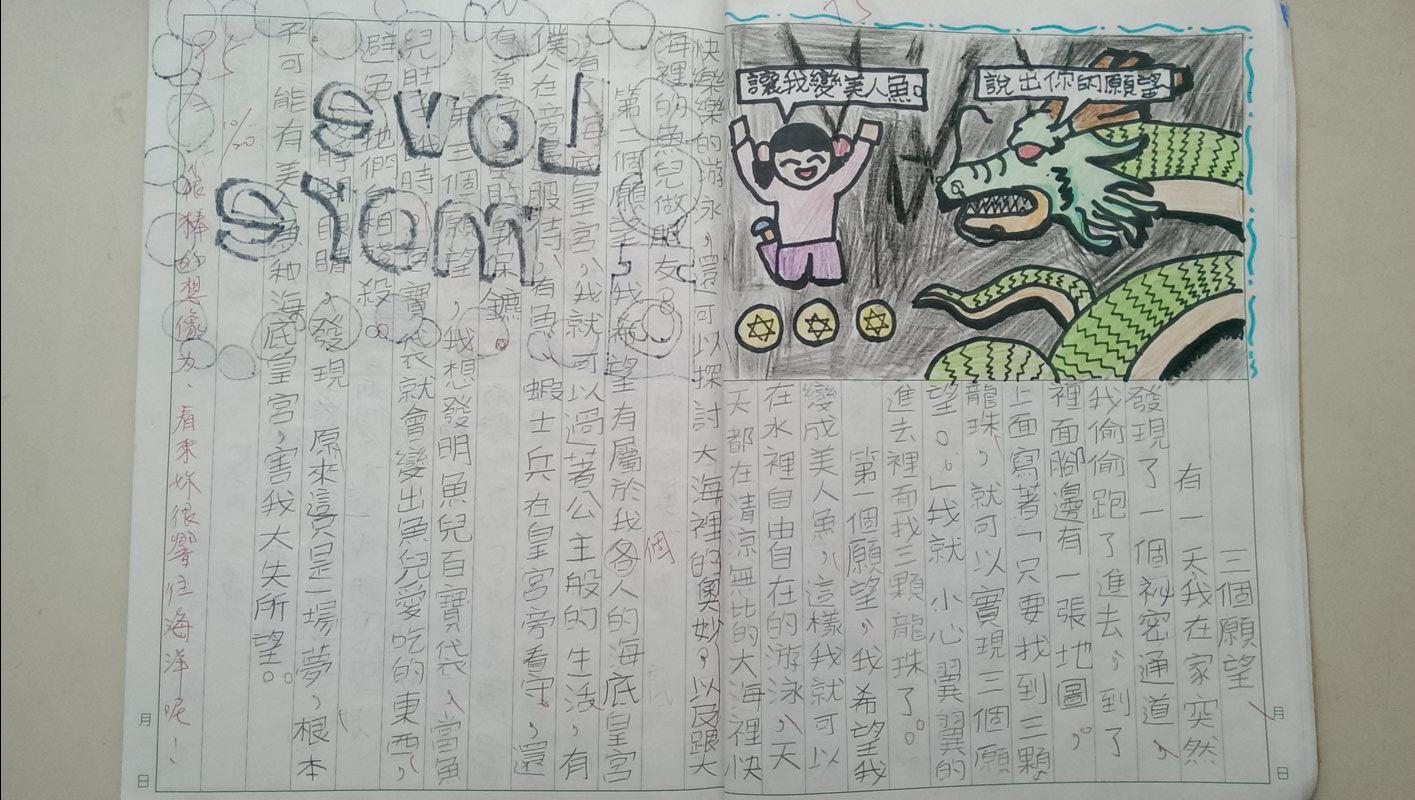 讓我變美人魚。
說出你的願望
三個願望
有一天,我在家突然
發現了一個祕密通道,
我偷偷跑了進去,到了
裡面腳邊有一張地圖。
上面寫著「只要找到三顆
龍珠,就可以實現三個願
望。」我就小心翼翼的
進去裡面找三顆龍珠了。
第一個願望,我希望我
變成美人魚,這樣我就可以
在水裡自由自在的游泳,天
天都在清涼無比的大海裡快
快樂樂的游泳,還可以探討大海裡的奧妙,以及跟大
海裡的魚兒做朋友。
第二個願望,我希望有屬於我各人的海底皇宮
個
,有了海底皇宮,我就可以過著公主般的生活,有
僕人在旁服侍,有魚蝦士兵在皇宮旁看守,還
有魚保鑣。
第三個願望,我想發明魚兒百寶袋,當魚
兒肚時寶袋就會變出魚兒愛吃的東西,
避免他們自殺。
,發現原來這只是一場夢,根本
不可能有美人魚和海底皇宮,害我大失所望。
95
10/20
很棒的想像力,看來妳很嚮往海洋呢!
月
日
月
日